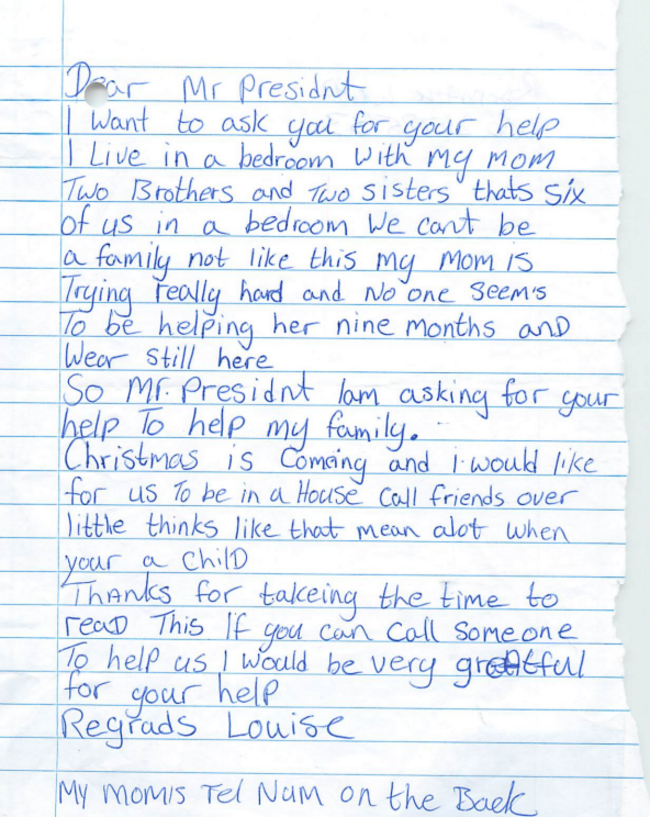 Dear Mr Presidnt
I want to ask you for your help
I Live in a bedroom with my mom
Two Brothers and Two sisters thats six
of us in a bedroom We cant be
a family not like this my Mom is
Trying really hard and No one Seem's
To be helping her nine months and
Wear still here
So Mr. Presidnt Iam asking for your
help To help my family.
Christmas is Comeing and i would like
for us To be in a House Call friends over
little thinks like that mean alot when
your a Child
Thanks for takeing the time to
read This If you can Call Someone
To help us I would be very greatful
for your help
Regrads Louise
My momis Tel Num on the Back